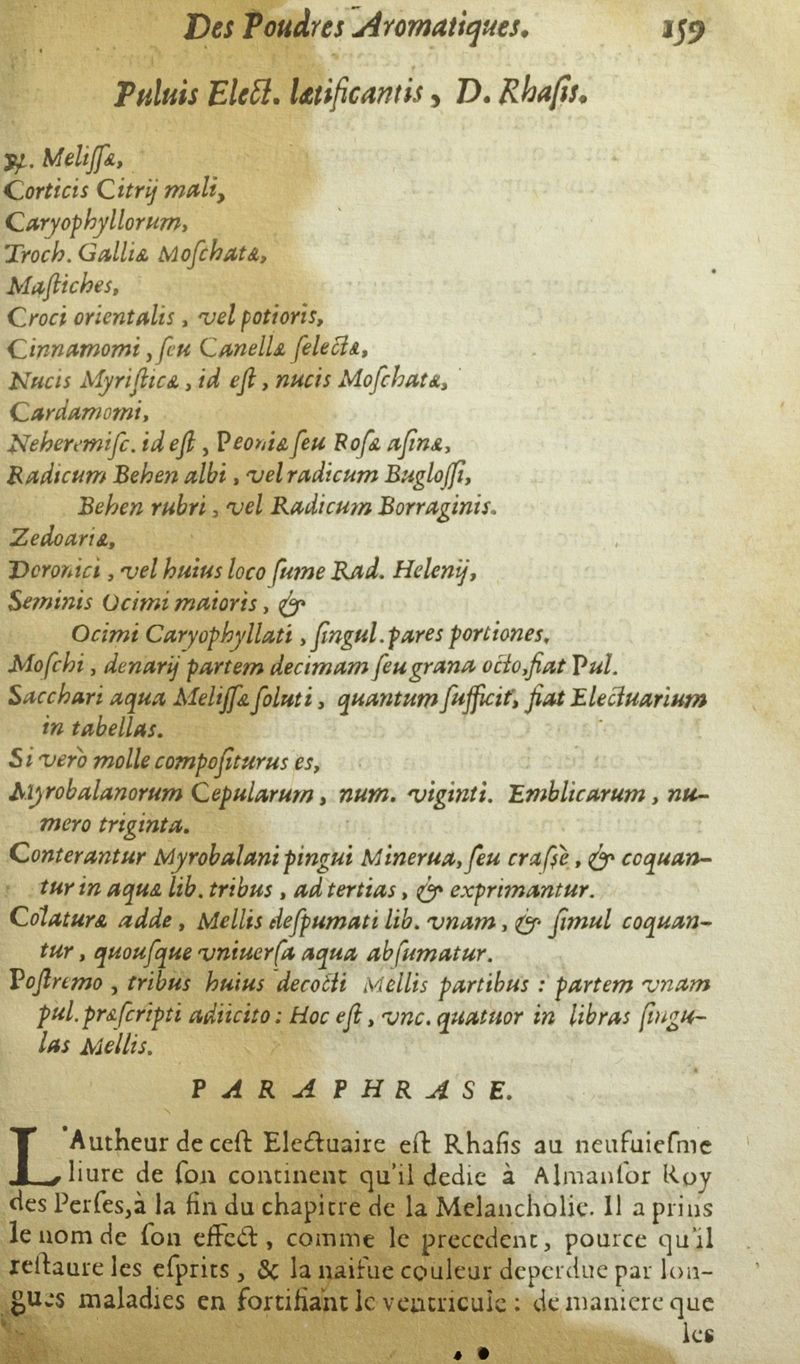 Des Poudres Aromatiques. 159
Puluis Elect. lætificantis, D. Rhasis.
℞. Melissæ,
Corticis Citrij mali,
Caryophyllorum,
Troch. Galliæ Moschatæ,
Mastiches,
Croci orientalis, vel potioris,
Cinnamomi, seu Canellæ selectæ,
Nucis Myristicæ, id est, nucis Moschatæ,
Cardamomi,
Neheremisc. id est, Peoniæ seu Rosæ asinæ,
Radicum Behen albi, vel radicum Buglossi,
Behen rubri, vel Radicum Borraginis.
Zedoariæ,
Doronici, vel huius loco sume Rad. Helenij,
Seminis Ocimi maioris, &
Ocimi Caryophyllati, singul. pares portiones,
Moschi, denarij partem decimam seu grana octo, fiat Pul.
Sacchari aqua Melissæ soluti, quantum sufficit, fiat Electuarium
in tabellas.
Si verò molle compositurus es,
Myrobalanorum Cepularum, num. viginti. Emblicarum, nu-
mero triginta.
Conterantur Myrobalani pingui Minerua, seu crassè, & coquan-
tur in aquæ lib. tribus, ad tertias, & exprimantur.
Colaturæ adde, Mellis despumati lib. vnam, & simul coquan-
tur, quousque vniuersa aqua absumatur.
Postremo, tribus huius decocti Mellis partibus : partem vnam
pul. præscripti adiicito : Hoc est, vnc. quatuor in libras singu-
las Mellis.
PARAPHRASE.
L'Autheur de cest Electuaire est Rhasis au neufuiesme
liure de son continent qu'il dedie à Almansor Roy
des Perses, à la fin du chapitre de la Melancholie. Il a prins
le nom de son effect, comme le precedent, pource qu'il
restaure les esprits, & la naifue couleur deperdue par lon-
gues maladies en fortifiant le ventricule : de maniere que
les